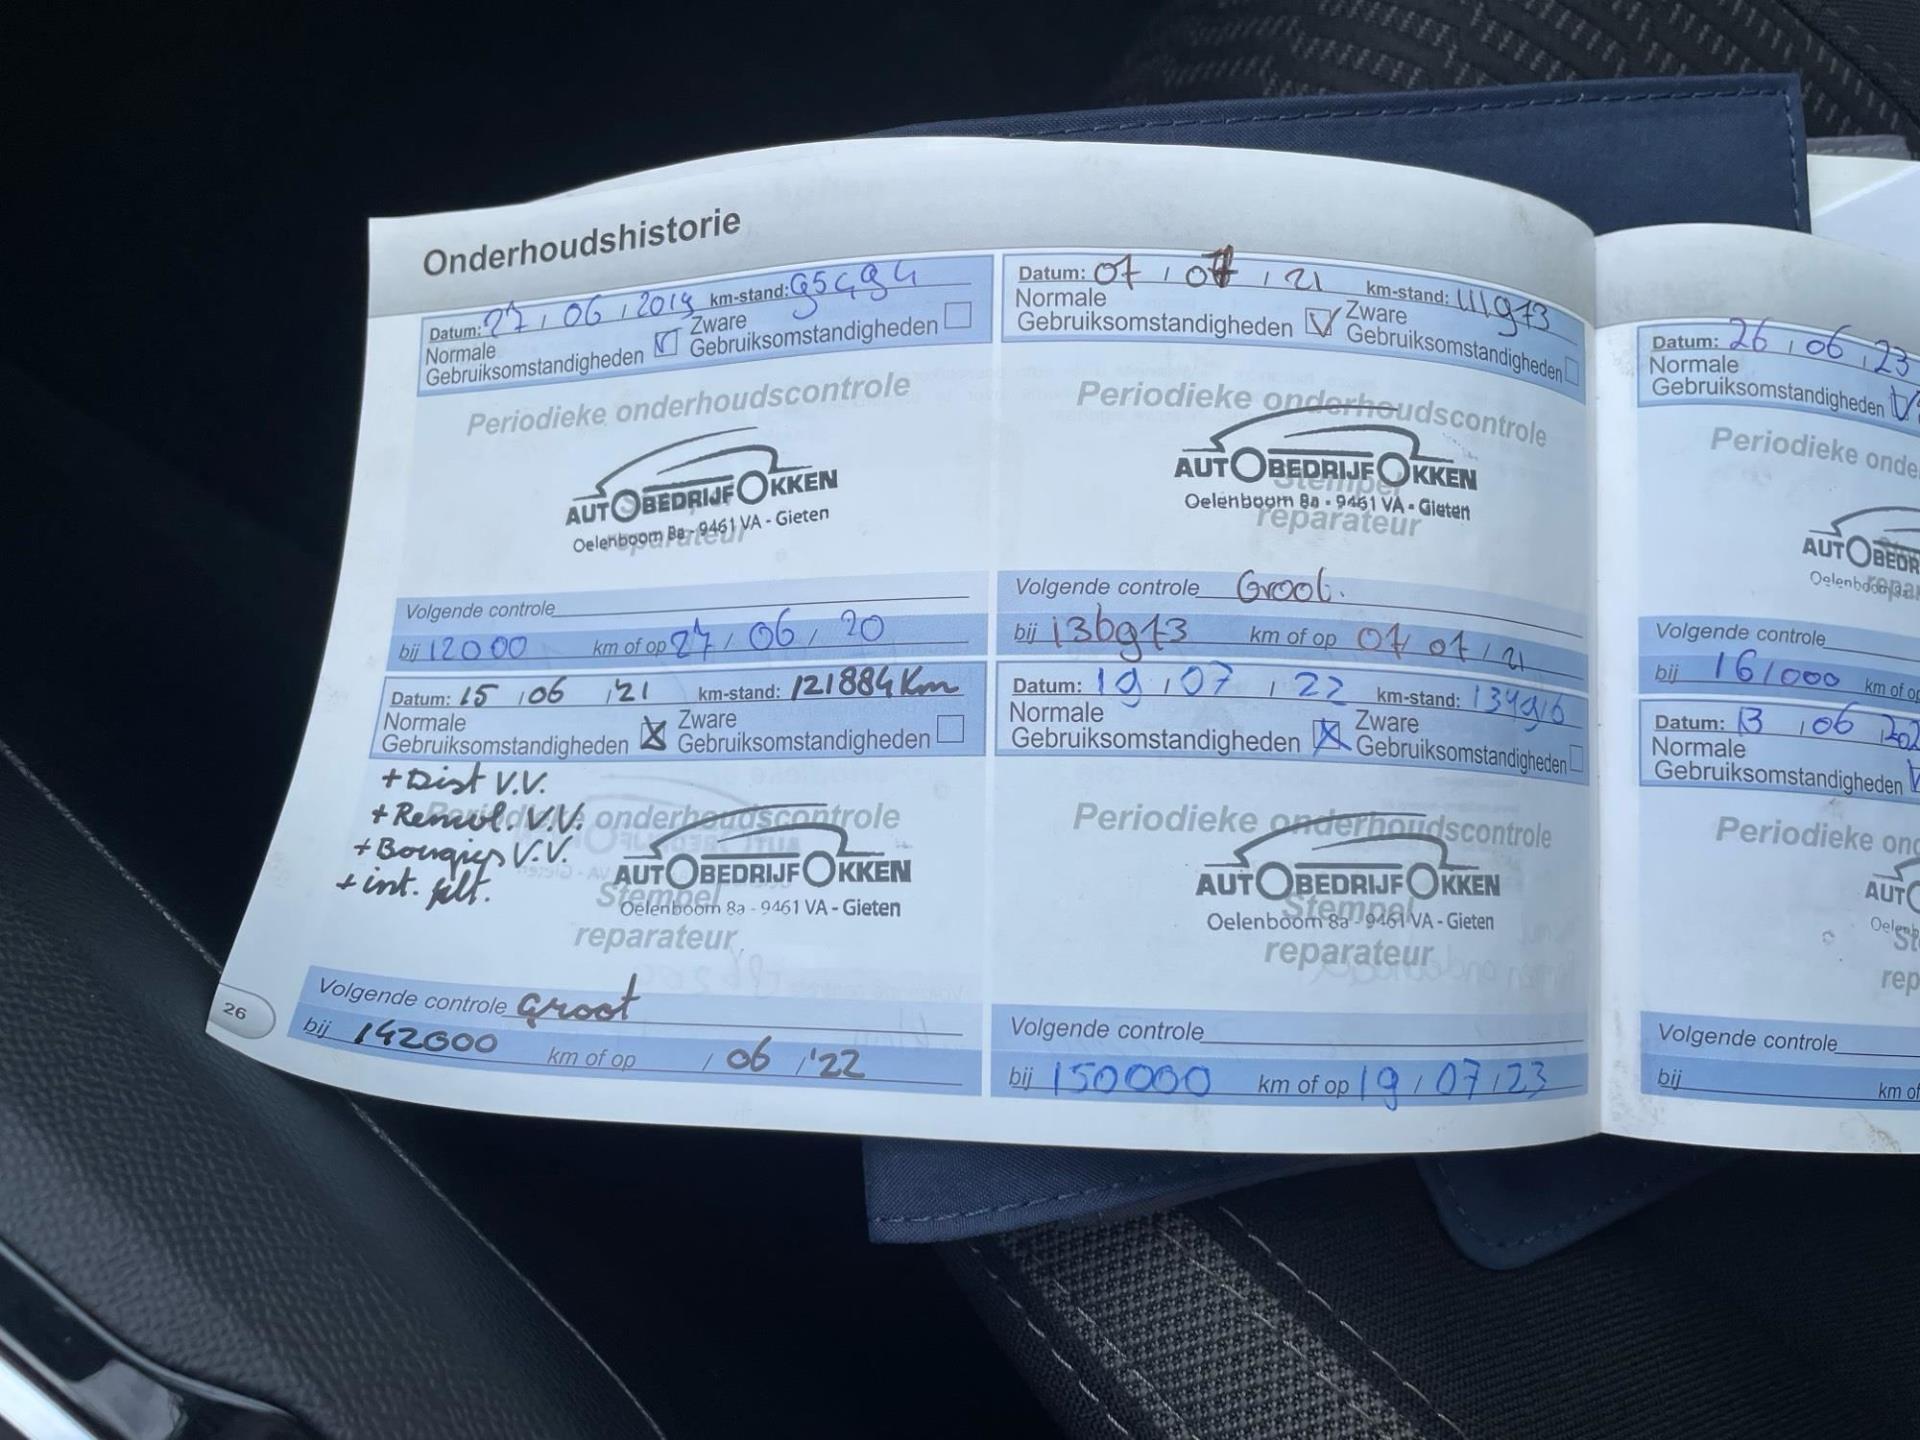 Onderhoudshistorie
Datum: 27 / 06 / 2019 km-stand: 95494
Normale
Gebruiksomstandigheden
Zware
Gebruiksomstandigheden
Periodieke onderhoudscontrole
AUTOBEDRIJF OKKEN
Oelenboom 8a - 9461 VA - Gieten
reparateur
Volgende controle
bij 12000 km of op 27 / 06 / 20
Datum: 15 / 06 / '21 km-stand: 121884 Km
Normale
Gebruiksomstandigheden
Zware
Gebruiksomstandigheden
+ Dist V.V.
+ Remvl. V.V.
+ Bougies V.V.
+ int. filt.
Periodieke onderhoudscontrole
AUTOBEDRIJF OKKEN
Stempel
Oelenboom 8a - 9461 VA - Gieten
reparateur
Volgende controle Groot
bij 142000 km of op / 06 / '22
26
Datum: 07 / 07 / 21 km-stand: 111973
Normale
Gebruiksomstandigheden
Zware
Gebruiksomstandigheden
Periodieke onderhoudscontrole
AUTOBEDRIJF OKKEN
Stempel
Oelenboom 8a - 9461 VA - Gieten
reparateur
Volgende controle Groot.
bij 136973 km of op 07 / 07 / 21
Datum: 19 / 07 / 22 km-stand: 134916
Normale
Gebruiksomstandigheden
Zware
Gebruiksomstandigheden
Periodieke onderhoudscontrole
AUTOBEDRIJF OKKEN
Stempel
Oelenboom 8a - 9461 VA - Gieten
reparateur
Volgende controle
bij 150000 km of op 19 / 07 / 23
Datum: 26 / 06 / 23
Normale
Gebruiksomstandigheden
Periodieke onde
AUTOBEDR
Oelenbo
repa
Volgende controle
bij 161000 km of op
Datum: 13 / 06 / 202
Normale
Gebruiksomstandigheden
Periodieke ond
AUTO
Oelenb
St
rep
Volgende controle
bij km of